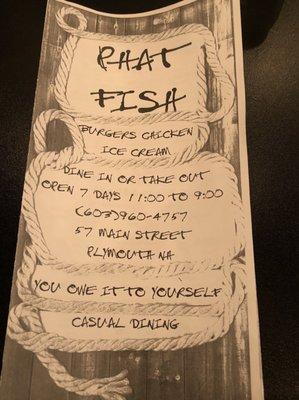 PHAT
FISH
BURGERS CHICKEN
ICE CREAM
DINE IN OR TAKE OUT
OPEN 7 DAYS 11:00 TO 9:00
(603)960-4757
57 MAIN STREET
PLYMOUTH NH
YOU OWE IT TO YOURSELF
CASUAL DINING